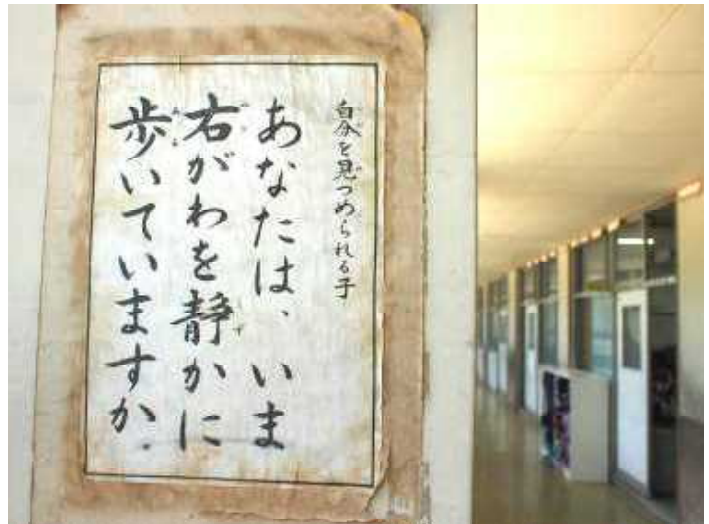 自分を見つめられる子
あなたは、いま
右がわを静かに
歩いていますか.